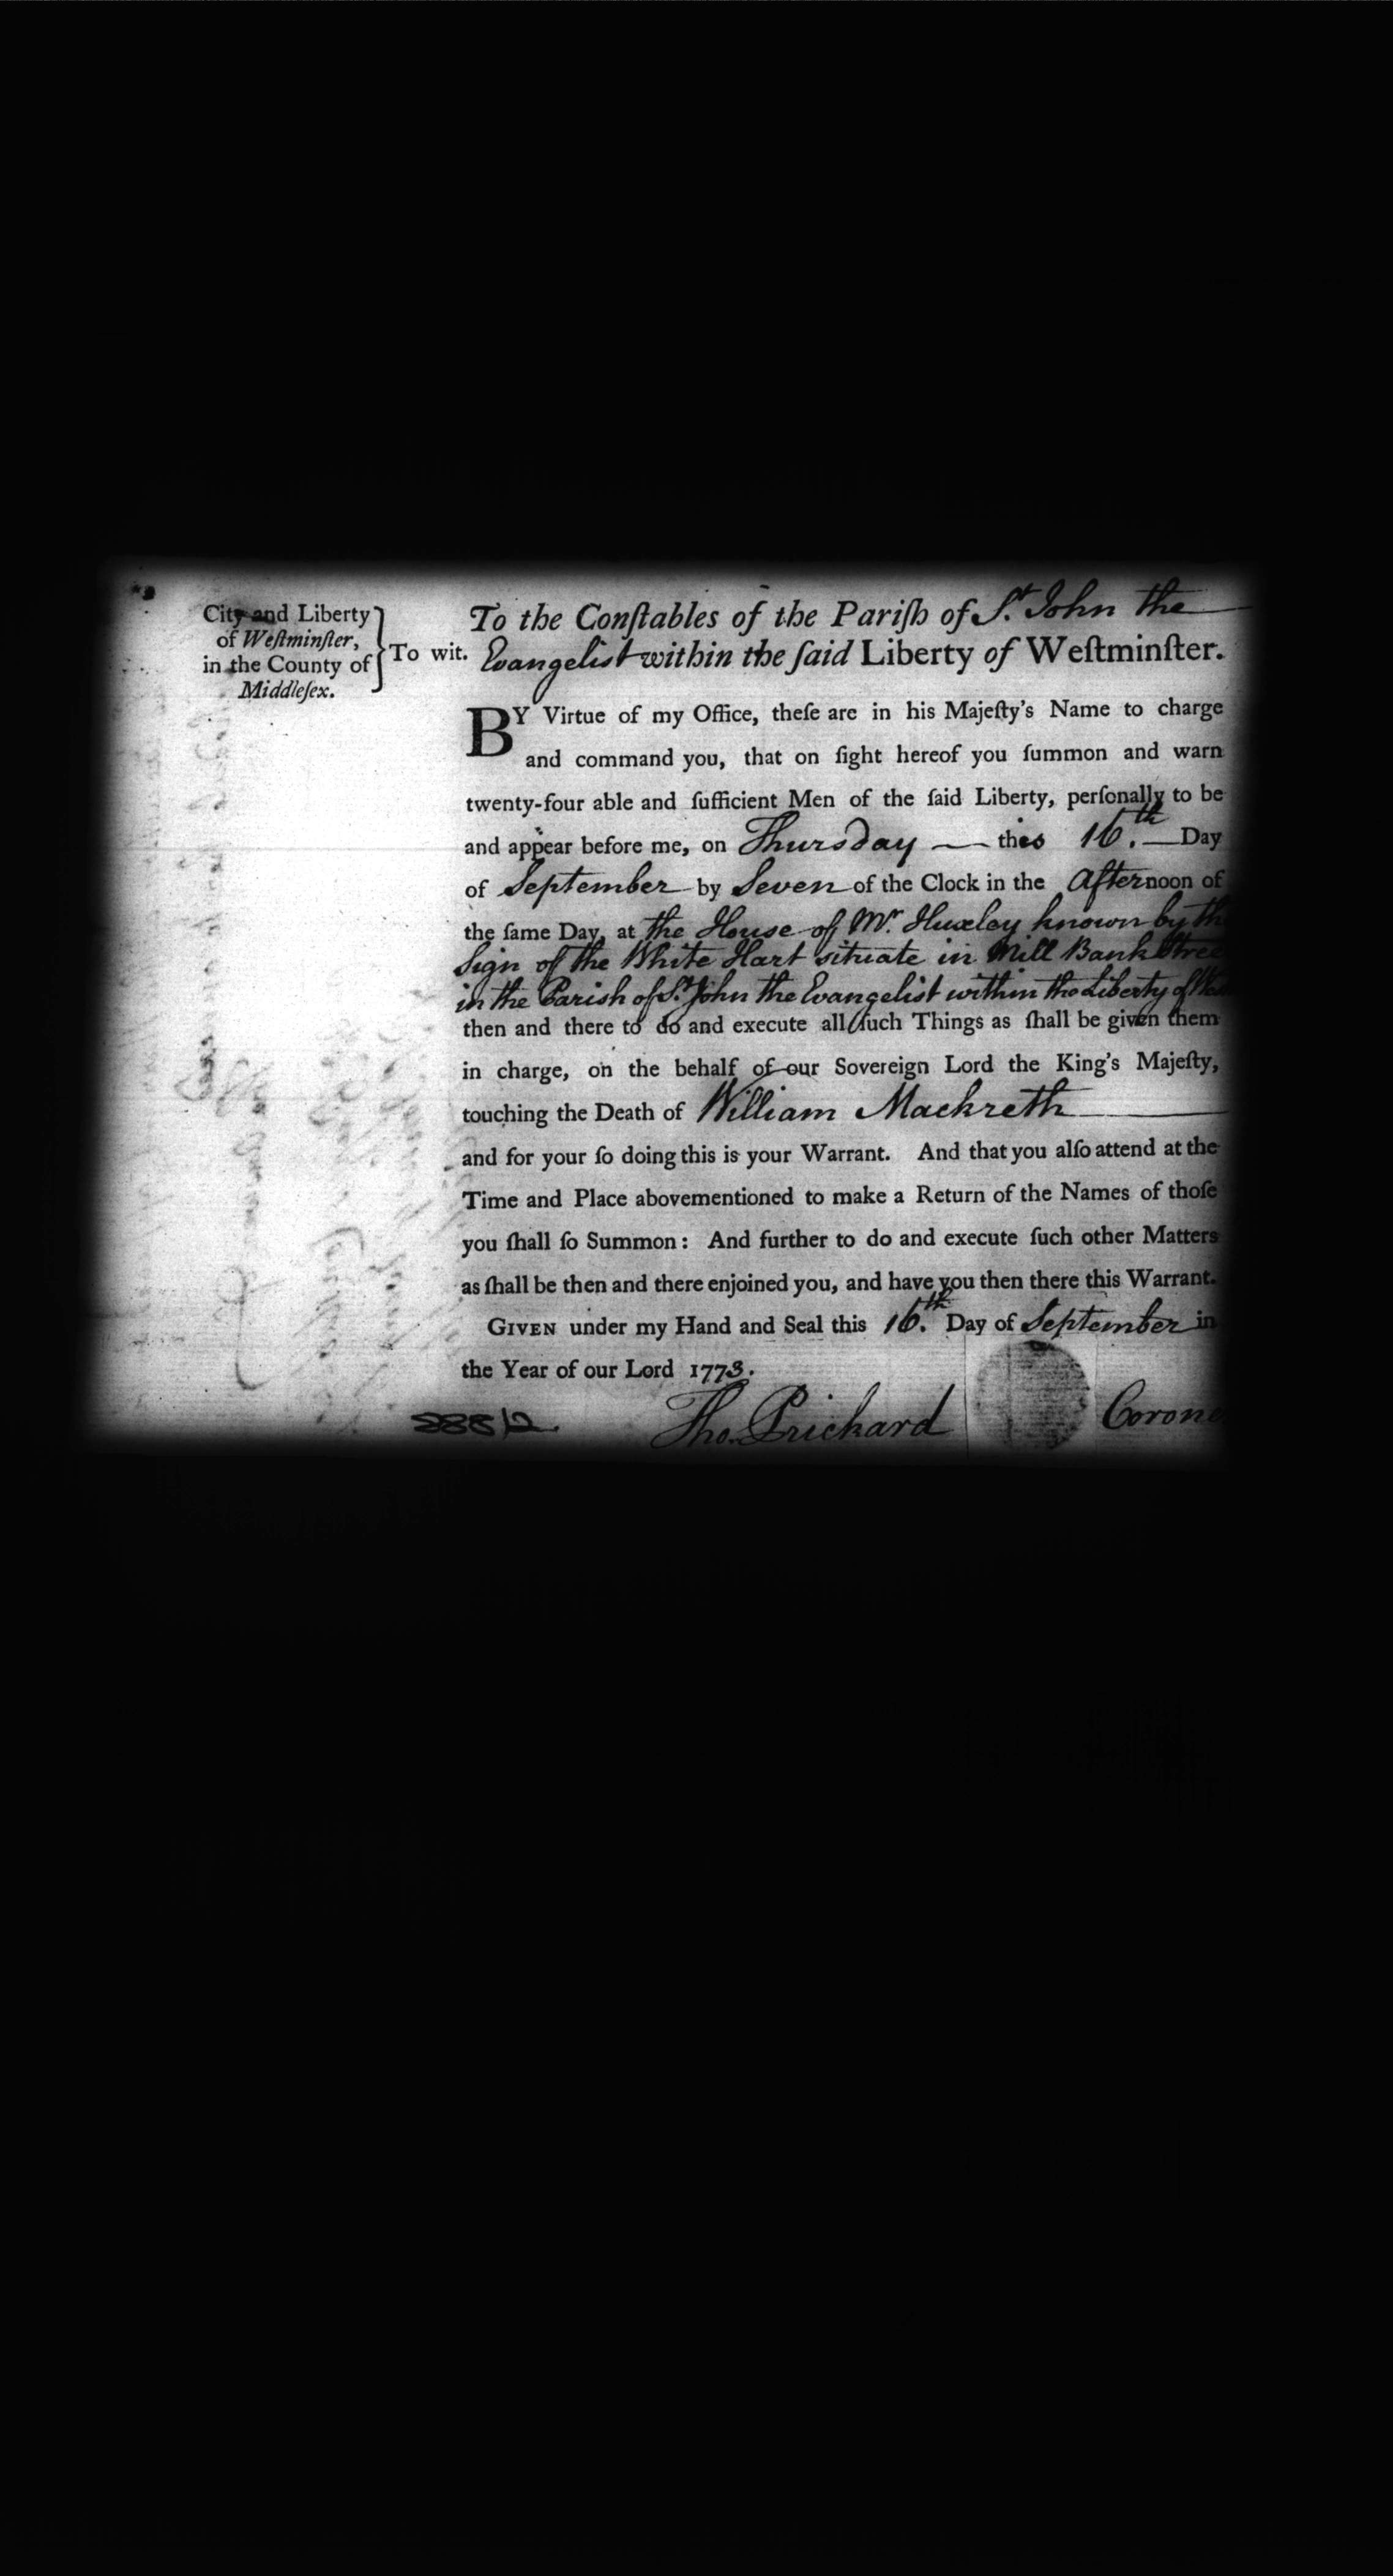 City and Liberty
of Weſtminſter,
in the County of
Middleſex.
To wit.
To the Conſtables of the Pariſh of St. John the
Evangelist within the ſaid Liberty of Weſtminſter.
BY Virtue of my Office, theſe are in his Majeſty's Name to charge
and command you, that on ſight hereof you ſummon and warn
twenty-four able and ſufficient Men of the ſaid Liberty, perſonally to be
and appear before me, on Thursday this 16.th Day
of September by Seven of the Clock in the Afternoon of
the ſame Day, at the House of Mr. Huxley known by
Sign of the White Hart situate in Mill Bank
in the Parish of St. John the Evangelist within the Liberty of
then and there to do and execute all ſuch Things as ſhall be given them
in charge, on the behalf of our Sovereign Lord the King's Majeſty,
touching the Death of William Mackreth
and for your ſo doing this is your Warrant. And that you alſo attend at the
Time and Place abovementioned to make a Return of the Names of thoſe
you ſhall ſo Summon: And further to do and execute ſuch other Matters
as ſhall be then and there enjoined you, and have you then there this Warrant.
GIVEN under my Hand and Seal this 16.th Day of September in
the Year of our Lord 1773.
Tho. Prichard